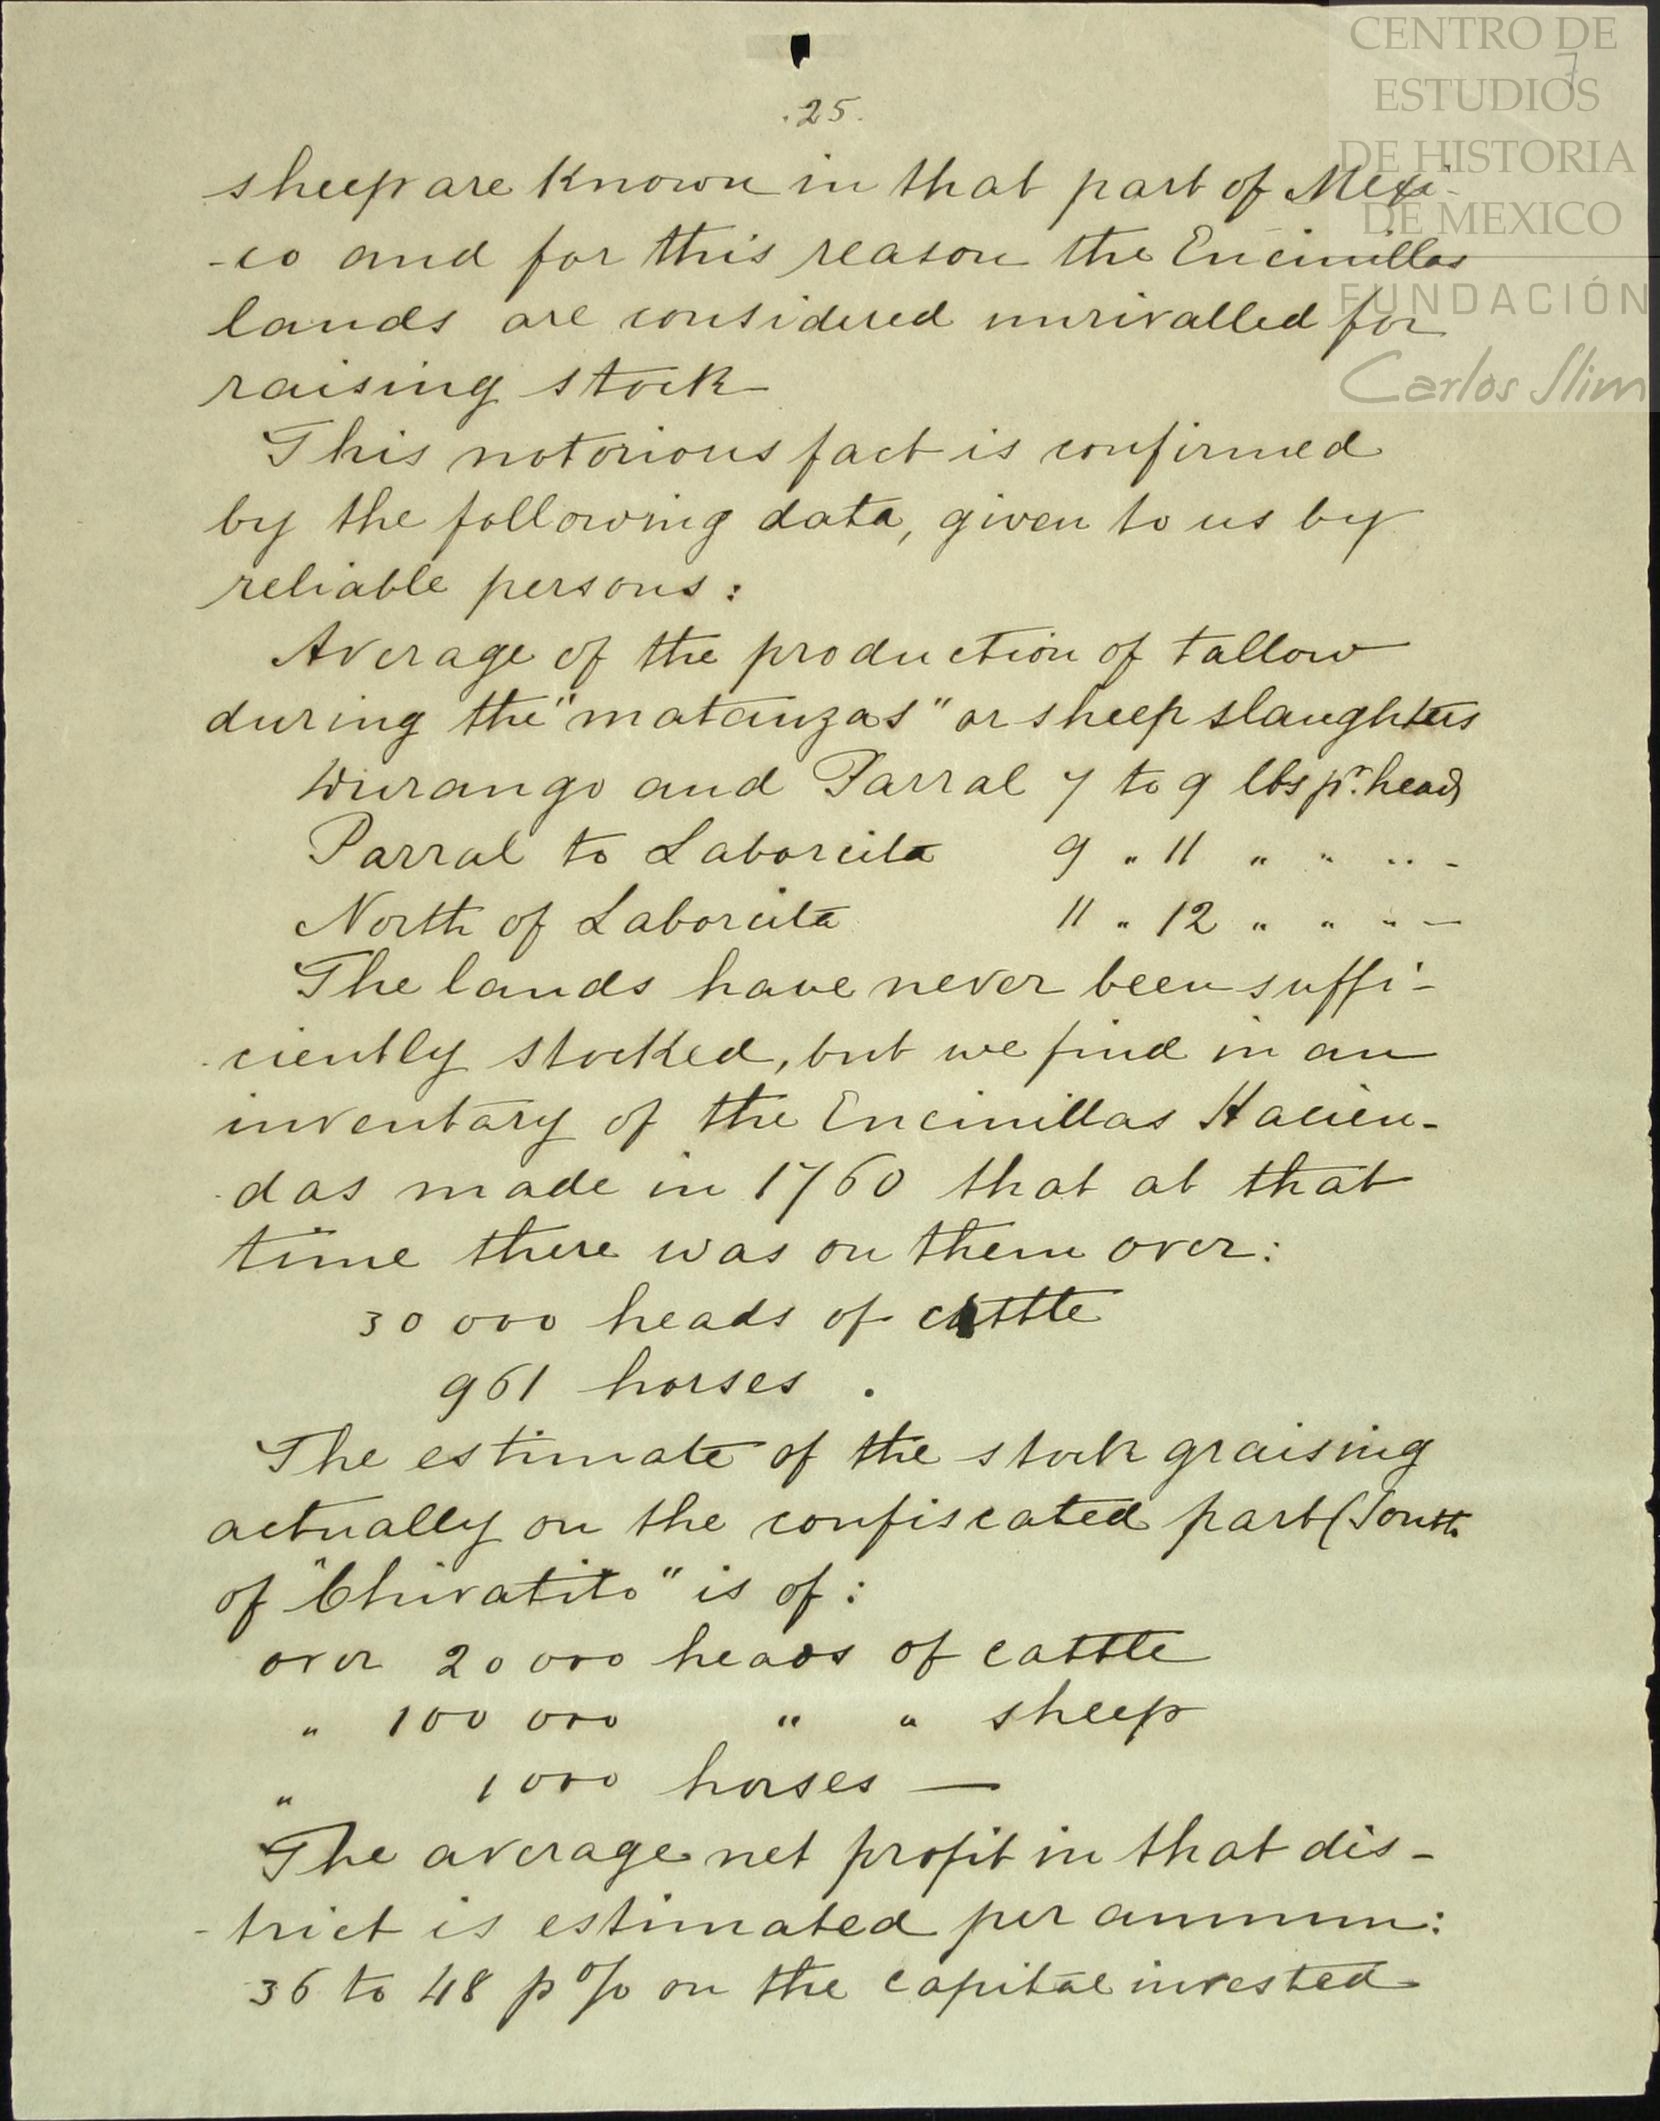 CENTRO DE
ESTUDIOS
DE HISTORIA
DE MEXICO
FUNDACIÓN
Carlos Slim
7
.25.
sheep are known in that part of Mexi-
-co and for this reason the Encinillas
lands are considered unrivalled for
raising stock
This notorious fact is confirmed
by the following data, given to us by
reliable persons:
Average of the production of tallow
during the "matanzas" or sheep slaughters
Durango and Parral 7 to 9 lbs pr. head
Parral to Laborcita 9 " 11 " " " -
North of Laborcita 11 " 12 " " " —
The lands have never been suffi-
-ciently stocked, but we find in an
inventary of the Encinillas Hacien-
-das made in 1760 that at that
time there was on them over:
30 000 heads of cattle
961 horses .
The estimate of the stock graising
actually on the confiscated part (South
of "Chivatito" is of:
over 20 000 heads of cattle
" 100 000 " " sheep
" 1000 horses —
The average net profit in that dis-
-trict is estimated per annum:
36 to 48 p% on the capital invested